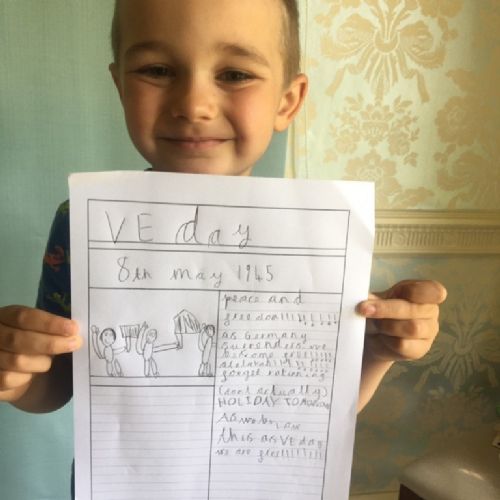 VE day
8th may 1945
peace and
freedom!!!!!!!!
as Germany
surenders we
become free!!!!!!
forget rationing
(dont actually)
HOLIDAY TOMOROW
this as VE day
we are free!!!!!!!!